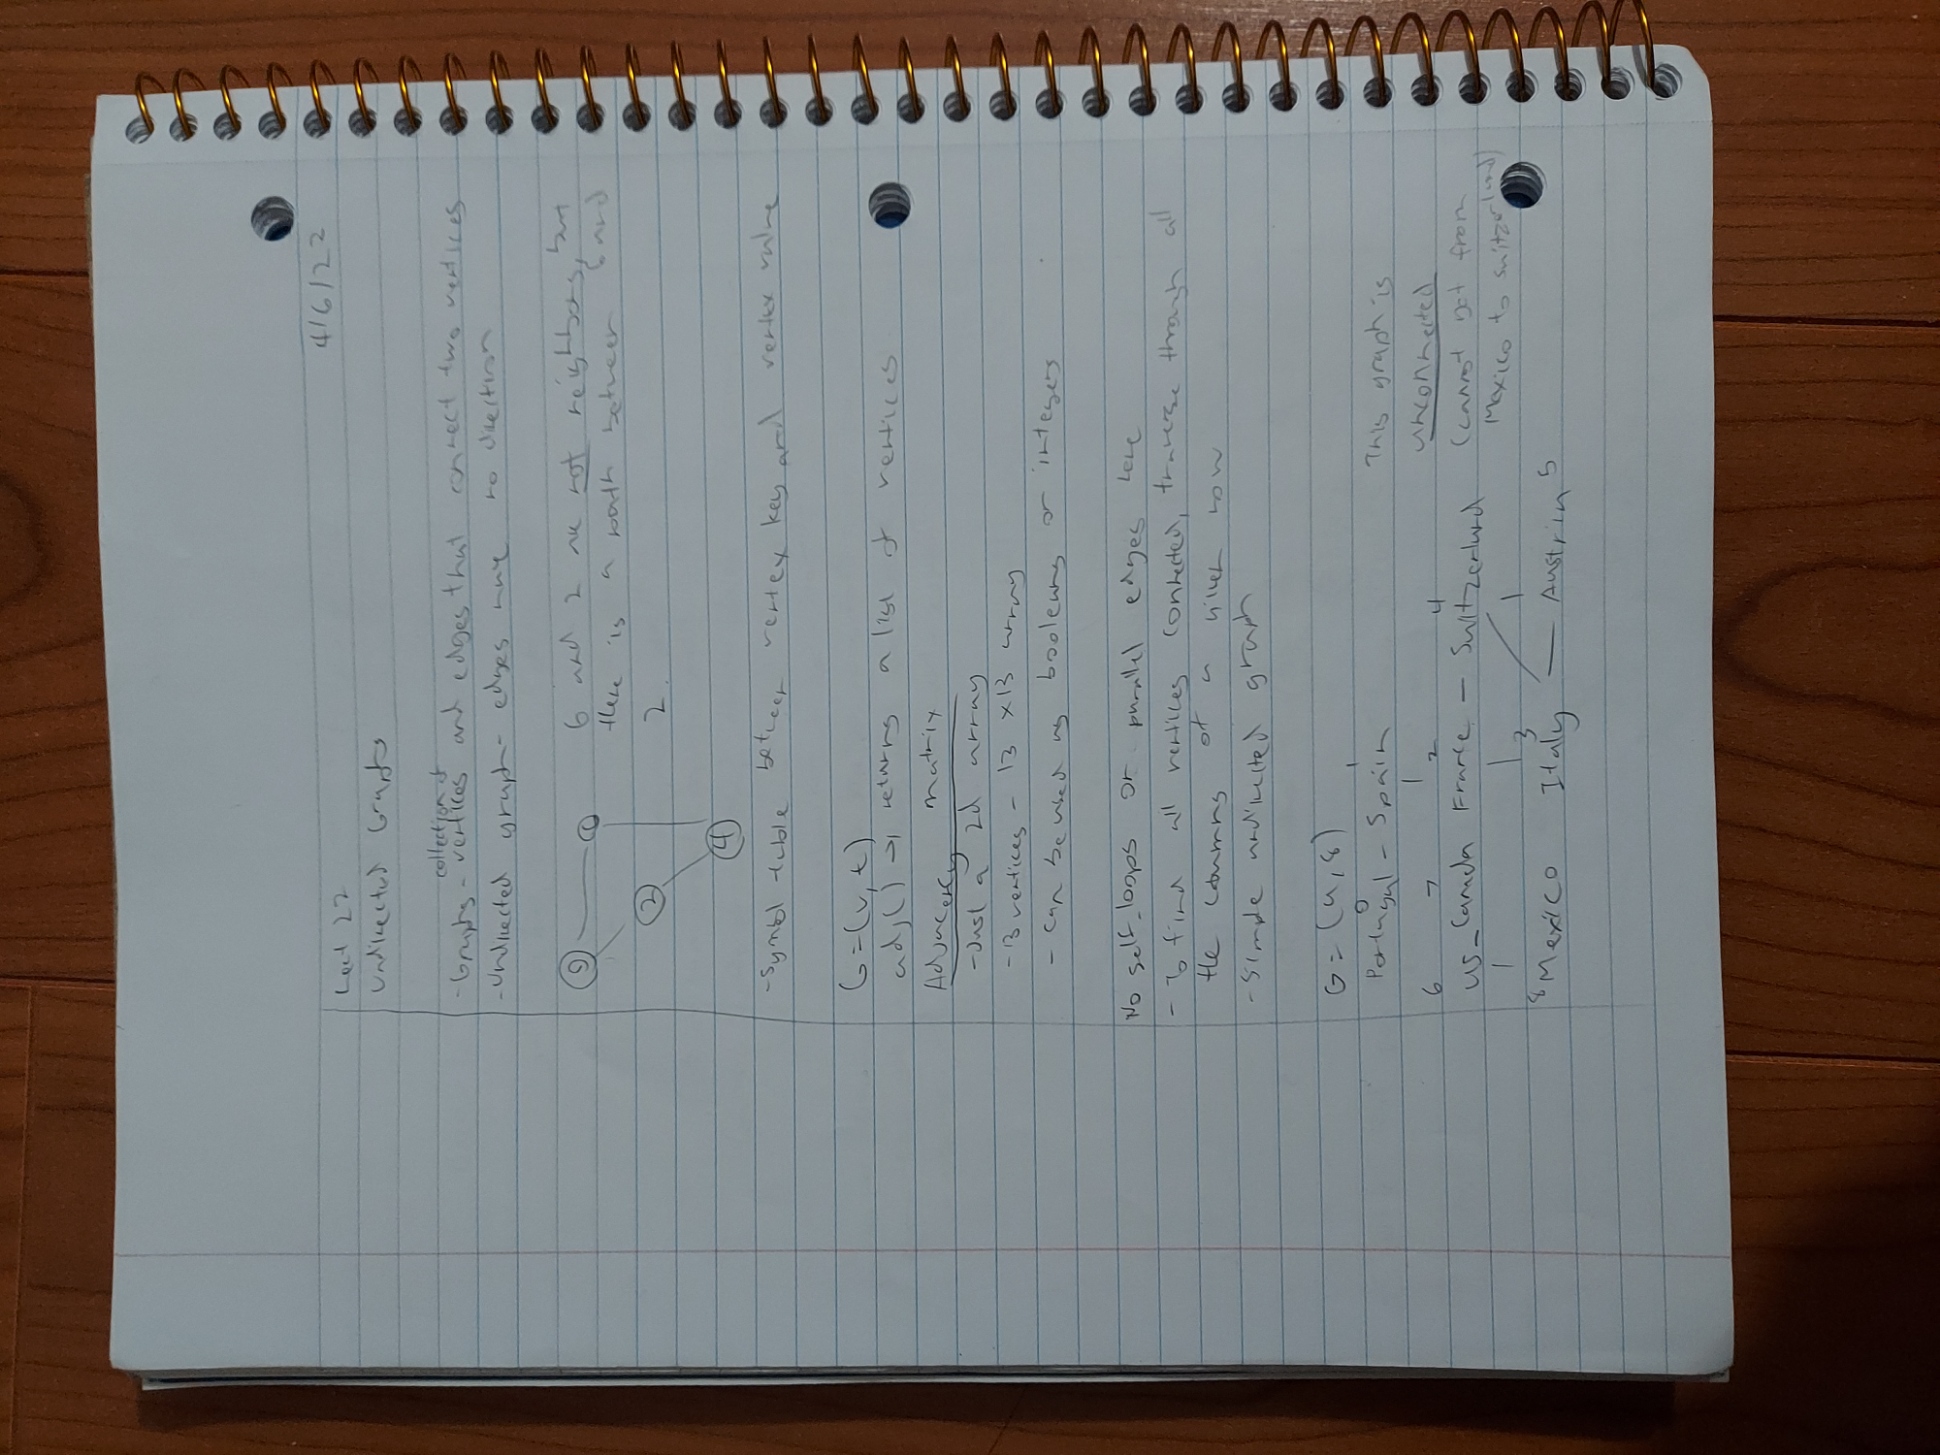 4/6/22
Lect 22
Undirected Graphs
collection of
- Graphs - vertices and edges that connect two vertices
- Undirected graph - edges have no direction
6 and 2 are not neighbors, but
there is a path between 6 and
2.
2
4
- Symbol table between vertex key and vertex value
G = (v, E)
adj() → returns a list of vertices
Adjacency matrix
- Just a 2d array
- 13 vertices - 13 x 13 array
- can be used as booleans or integers
No self-loops or parallel edges here
- To find all vertices connected, traverse through all
the columns of a given row
- Simple undirected graph
0 1
Portugal - Spain
This graph is
unconnected
6 7 2 4
US - Canada France - Switzerland
(cannot get from
Mexico to Switzerland)
3
8 Mexico Italy - Austria 5